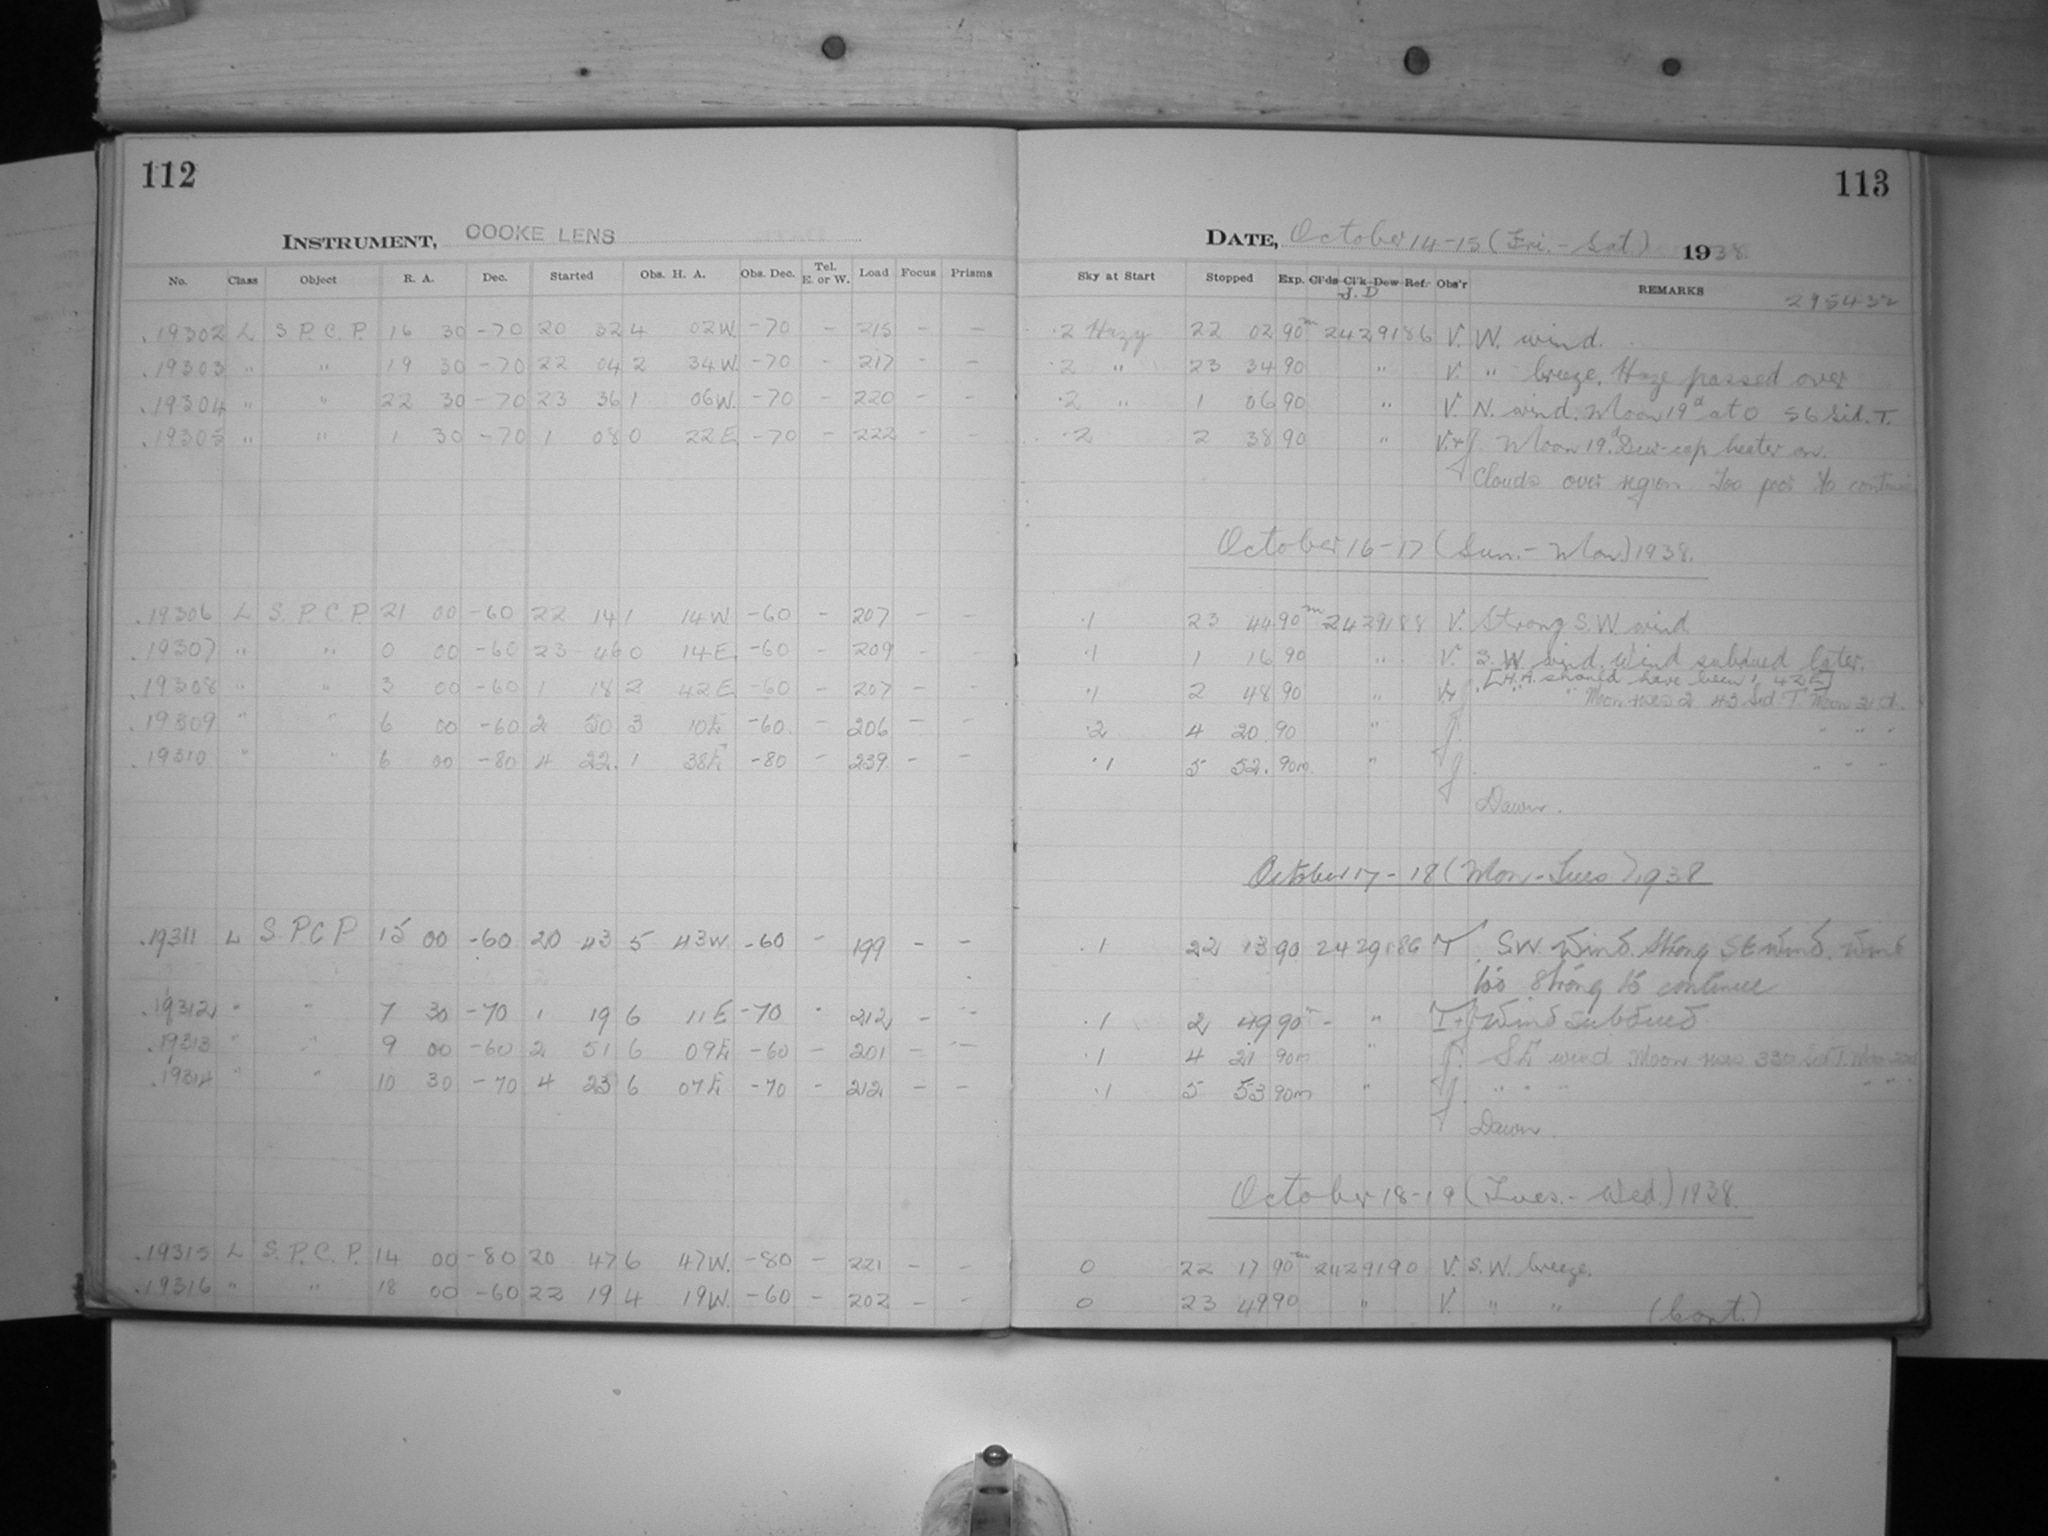 112
113
INSTRUMENT, COOKE LENS
DATE, October 14-15 (Fri. - Sat.) 1938.
No. Class Object R. A. Dec. Started Obs. H. A. Obs. Dec. Tel. E. or W. Load Focus Prisms Sky at Start Stopped Exp. Cl'ds Cl'k Dew Ref. Obs'r REMARKS
J.D 295432
.19302 L S.P.C.P. 16 30 -70 20 32 4 02W. -70 - 215 - - .2 Hazy 22 02 90m 2429186 V. W. wind.
.19303 " " 19 30 -70 22 04 2 34W. -70 - 217 - - .2 " 23 34 90 " V. " breeze. Haze passed over
.19304 " " 22 30 -70 23 36 1 06W. -70 - 220 - - .2 " 1 06 90 " V. N. wind. Moon 19d at 0 56 Sid. T.
.19305 " " 1 30 -70 1 08 0 22E -70 - 222 - - .2 2 38 90 " V.+J. Moon 19d. Dew-cap heater on.
Clouds over region. Too poor to continue
October 16-17 (Sun. - Mon.) 1938.
.19306 L S.P.C.P. 21 00 -60 22 14 1 14W. -60 - 207 - - .1 23 44 90m 2429188 V. Strong S.W. wind
.19307 " " 0 00 -60 23 46 0 14E. -60 - 209 - - .1 1 16 90 " V. S.W. wind. Wind subdued later.
[H.A. should have been 1 42E]
.19308 " " 3 00 -60 1 18 2 42E -60 - 207 - - .1 2 48 90 " V.+J. " " Moon rises 2 43 Sid T. Moon 21 d.
.19309 " " 6 00 -60 2 50 3 10E -60. - 206 - - .2 4 20 90 " J. " " "
.19310 " " 6 00 -80 4 22. 1 38E -80 - 239 - - .1 5 52. 90m. " J. " " "
Dawn.
October 17-18 (Mon - Tues) 1938
.19311 L S.P.C.P 15 00 -60 20 43 5 43W. -60 - 199 - - .1 22 13 90 2429186 T. SW. Wind. Strong SE wind. wind
too strong to continue
.19312 " " 7 30 -70 1 19 6 11E -70 - 212 - - .1 2 49 90m - " T+J Wind subdued
.19313 " " 9 00 -60 2 51 6 09E -60 - 201 - - .1 4 21 90m " J. SE wind Moon rises 330 Sid T.
.19314 " " 10 30 -70 4 23 6 07E -70 - 212 - - .1 5 53 90m " J. " " " " " "
Dawn.
October 18-19 (Tues. - Wed.) 1938.
.19315 L S.P.C.P. 14 00 -80 20 47 6 47W. -80 - 221 - - 0 22 17 90m 2429190 V. S.W. breeze.
.19316 " " 18 00 -60 22 19 4 19W. -60 - 202 - - 0 23 49 90 " V. " " (Cont.)